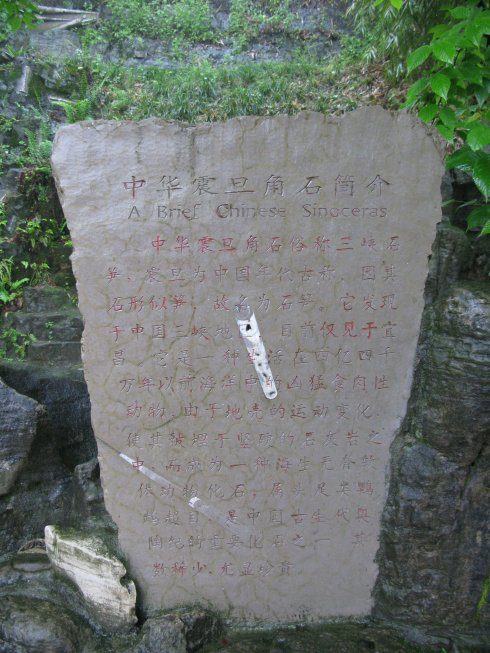 中华震旦角石简介
A Brief Chinese Sinoceras
中华震旦角石俗称三峡石
笋，震旦为中国年代古称，因其
石形似笋，故名为石笋。它发现
于中国三峡地 目前仅见于宜
昌，它是一种生活在四亿四千
万年以前海洋中的凶猛食肉性
动物，由于地壳的运动变化，
使其被埋于坚硬的石灰岩之
中，而成为一种海生无脊
椎动物化石，属头足类鹦
鹉超目，是中国古生代奥
陶纪的重要化石之一，其
数稀少，尤显珍贵